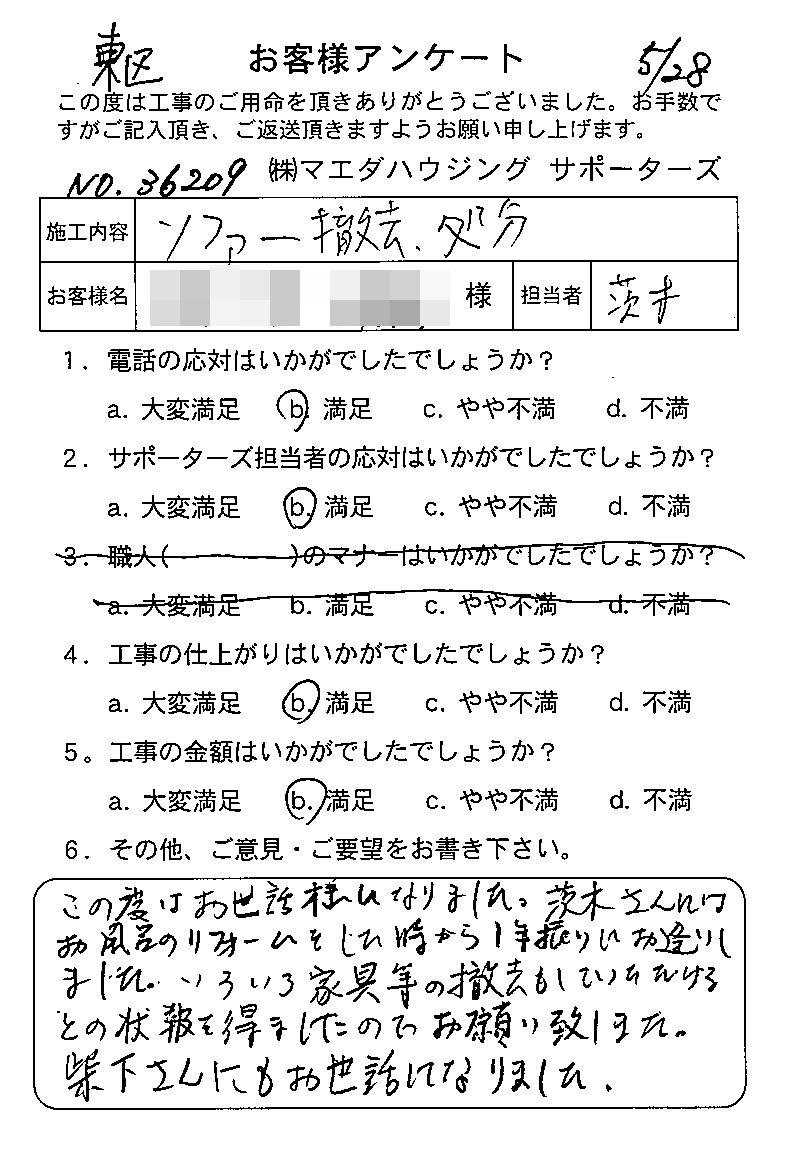 東区 お客様アンケート 5/28
この度は工事のご用命を頂きありがとうございました。お手数で
すがご記入頂き、ご返送頂きますようお願い申し上げます。
NO. 36209 ㈱マエダハウジング サポーターズ
施工内容 ソファー撤去、処分
お客様名 様 担当者 茨木
1. 電話の応対はいかがでしたでしょうか?
a. 大変満足 b. 満足 c. やや不満 d. 不満
2. サポーターズ担当者の応対はいかがでしたでしょうか?
a. 大変満足 b. 満足 c. やや不満 d. 不満
3. 職人( )のマナーはいかがでしたでしょうか?
a. 大変満足 b. 満足 c. やや不満 d. 不満
4. 工事の仕上がりはいかがでしたでしょうか?
a. 大変満足 b. 満足 c. やや不満 d. 不満
5。工事の金額はいかがでしたでしょうか?
a. 大変満足 b. 満足 c. やや不満 d. 不満
6. その他、ご意見・ご要望をお書き下さい。
この度はお世話様になりました。茨木さんには
お風呂のリフォームをした時から1年振りにお逢いし
ました。いろいろ家具等の撤去もしていただける
との状報を得ましたのでお願い致しました。
柴下さんにもお世話になりました.